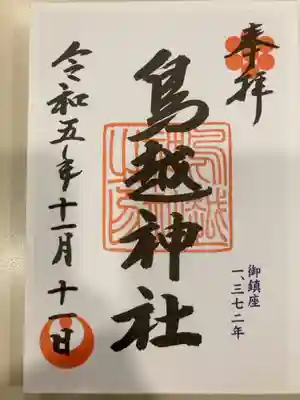 奉拝
鳥越神社
御鎮座
一、三七二年
令和五年十一月十一日